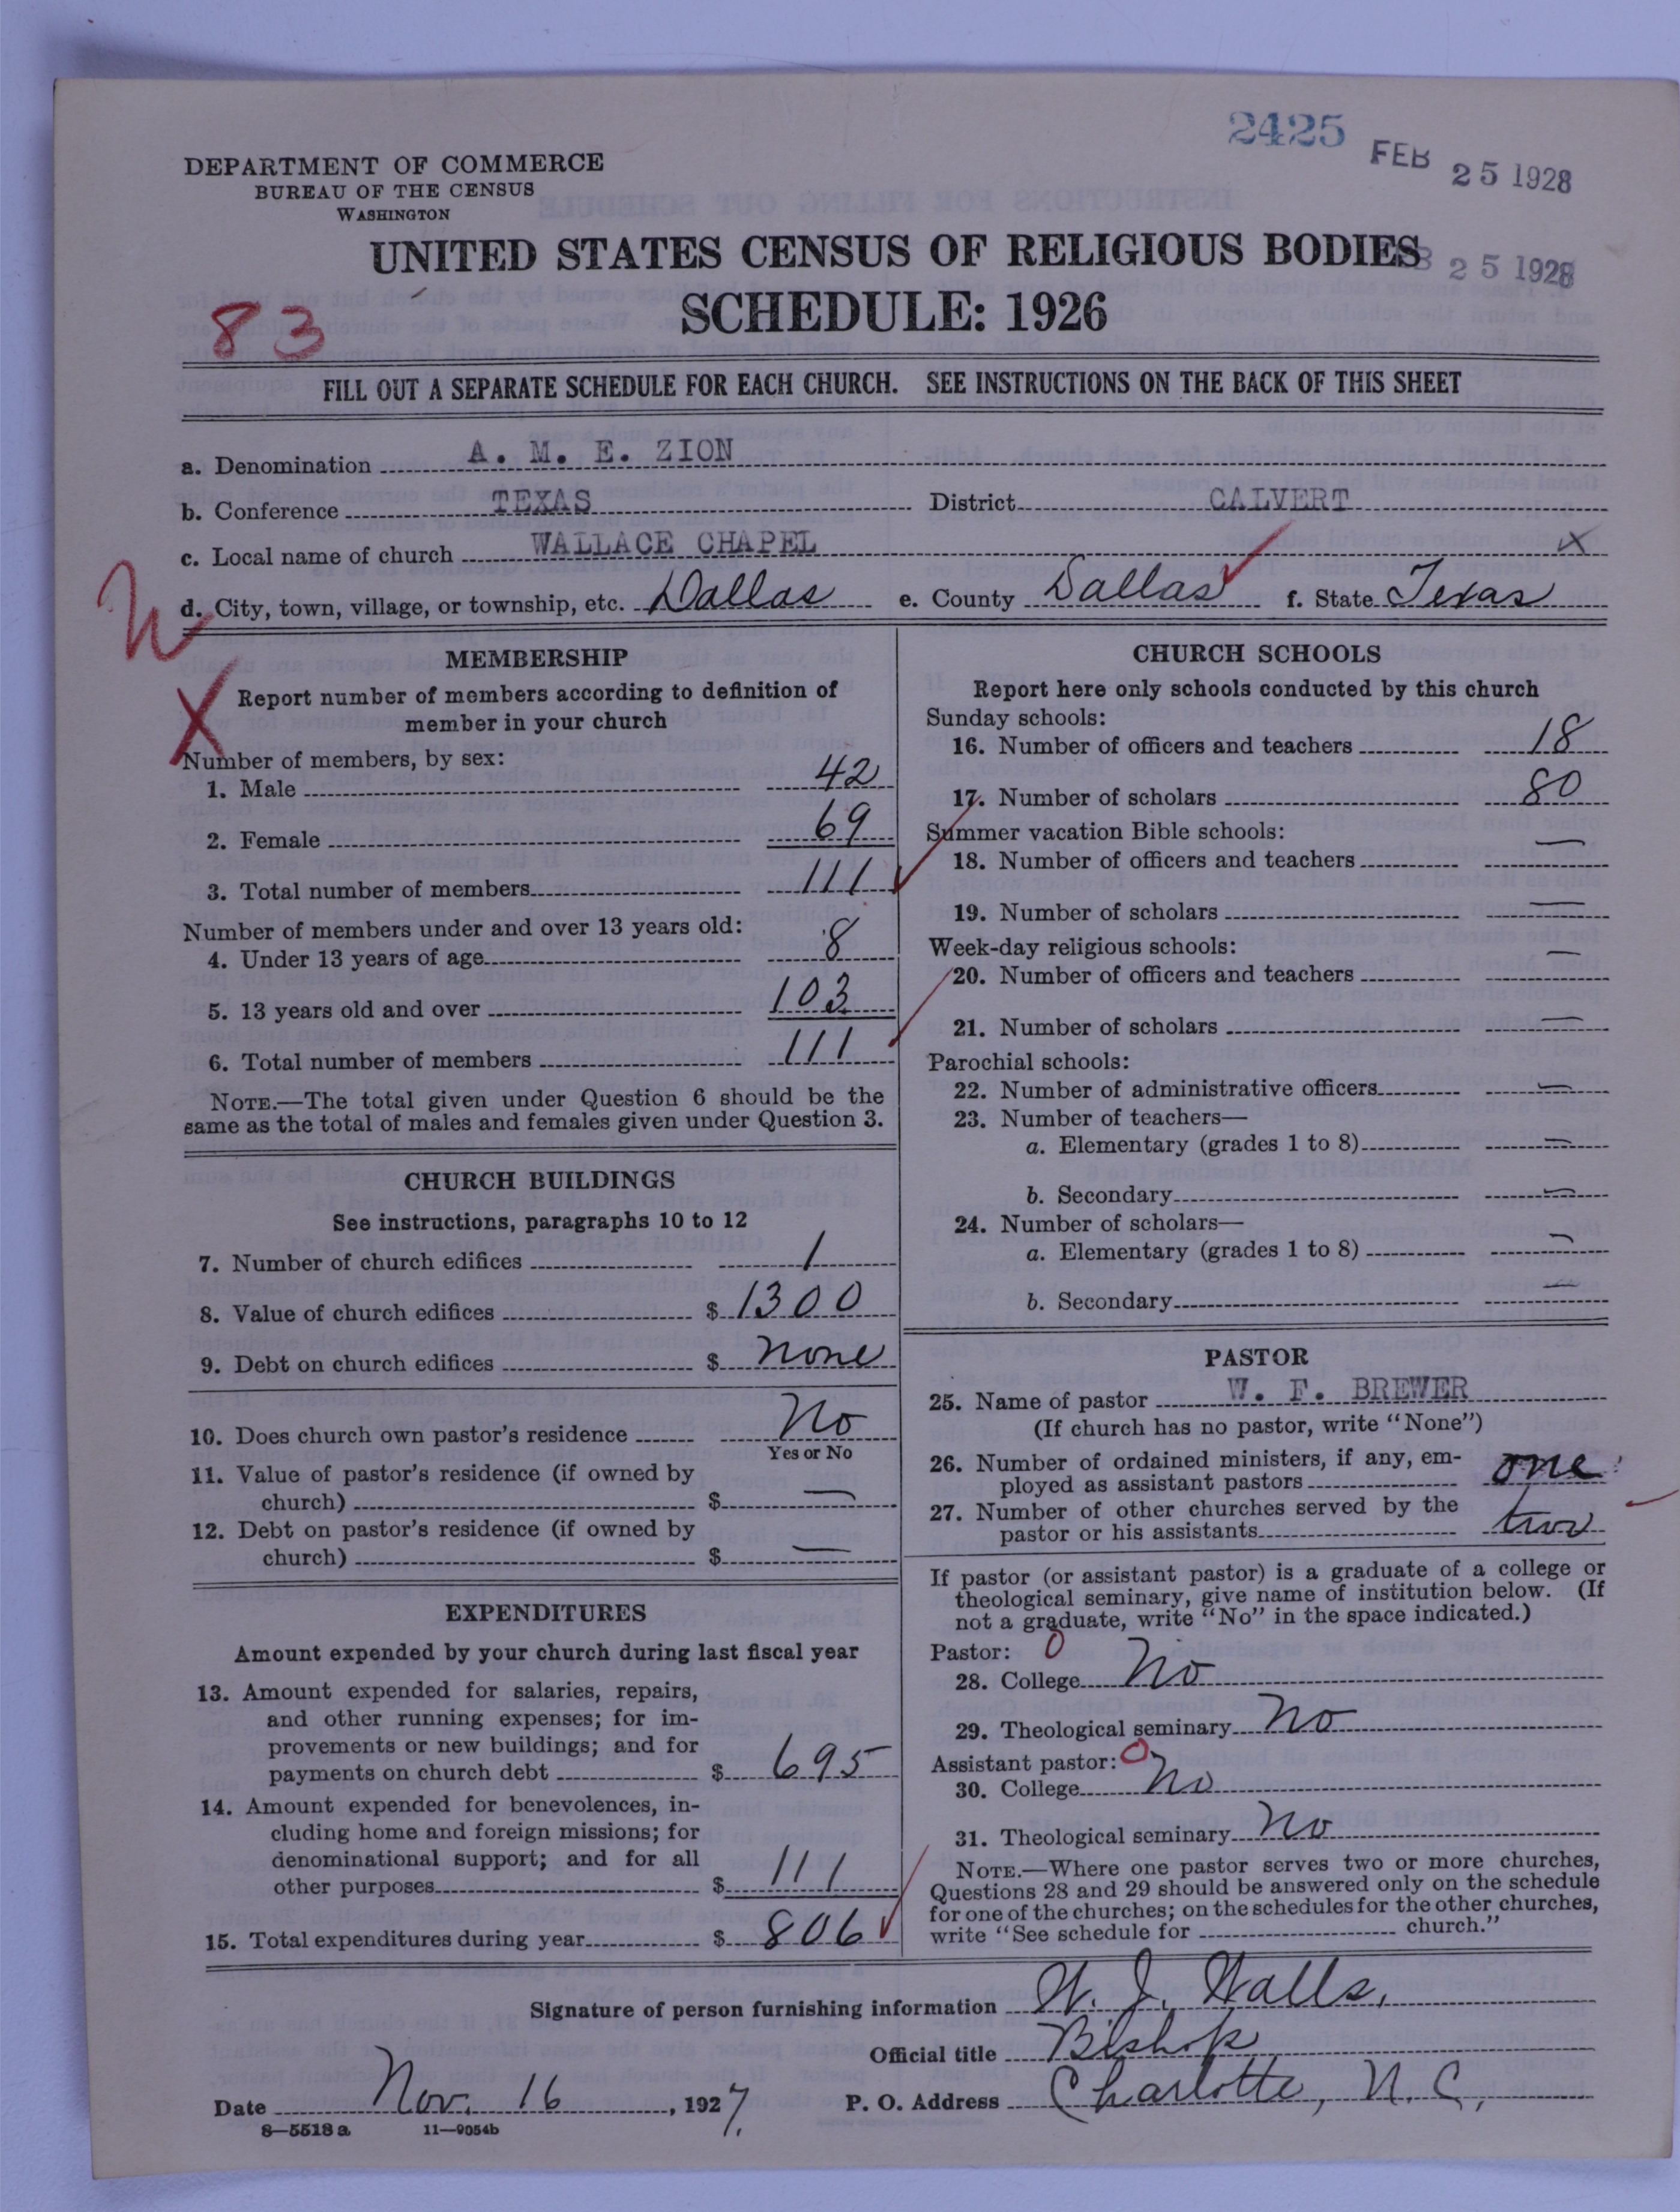 2425
FEB 25 1928
DEPARTMENT OF COMMERCE
BUREAU OF THE CENSUS
WASHINGTON
UNITED STATES CENSUS OF RELIGIOUS BODIES
25 1928
SCHEDULE: 1926
83
FILL OUT A SEPARATE SCHEDULE FOR EACH CHURCH. SEE INSTRUCTIONS ON THE BACK OF THIS SHEET
a. Denomination A. M. E. ZION
b. Conference TEXAS District CALVERT
c. Local name of church WALLACE CHAPEL X
d. City, town, village, or township, etc. Dallas e. County Dallas f. State Texas
MEMBERSHIP
X
Report number of members according to definition of
member in your church
Number of members, by sex:
1. Male 42
2. Female 69
3. Total number of members 111
Number of members under and over 13 years old:
4. Under 13 years of age 8
5. 13 years old and over 103
6. Total number of members 111
NOTE.—The total given under Question 6 should be the
same as the total of males and females given under Question 3.
CHURCH BUILDINGS
See instructions, paragraphs 10 to 12
7. Number of church edifices 1
8. Value of church edifices $ 1300
9. Debt on church edifices $ none
10. Does church own pastor's residence No
Yes or No
11. Value of pastor's residence (if owned by
church) $ —
12. Debt on pastor's residence (if owned by
church) $ —
EXPENDITURES
Amount expended by your church during last fiscal year
13. Amount expended for salaries, repairs,
and other running expenses; for im-
provements or new buildings; and for
payments on church debt $ 695
14. Amount expended for benevolences, in-
cluding home and foreign missions; for
denominational support; and for all
other purposes $ 111
15. Total expenditures during year $ 806
CHURCH SCHOOLS
Report here only schools conducted by this church
Sunday schools:
16. Number of officers and teachers 18
17. Number of scholars 80
Summer vacation Bible schools:
18. Number of officers and teachers —
19. Number of scholars —
Week-day religious schools:
20. Number of officers and teachers —
21. Number of scholars —
Parochial schools:
22. Number of administrative officers —
23. Number of teachers—
a. Elementary (grades 1 to 8) —
b. Secondary —
24. Number of scholars—
a. Elementary (grades 1 to 8) —
b. Secondary —
PASTOR
25. Name of pastor W. F. BREWER
(If church has no pastor, write "None")
26. Number of ordained ministers, if any, em-
ployed as assistant pastors one
27. Number of other churches served by the
pastor or his assistants two
If pastor (or assistant pastor) is a graduate of a college or
theological seminary, give name of institution below. (If
not a graduate, write "No" in the space indicated.)
Pastor: 0
28. College No
29. Theological seminary No
Assistant pastor: 0
30. College No
31. Theological seminary No
NOTE.—Where one pastor serves two or more churches,
Questions 28 and 29 should be answered only on the schedule
for one of the churches; on the schedules for the other churches,
write "See schedule for church."
Signature of person furnishing information W. J. Walls,
Official title Bishop
Date Nov. 16, 1927. P. O. Address Charlotte, N. C.,
8—5518 a 11—9054b